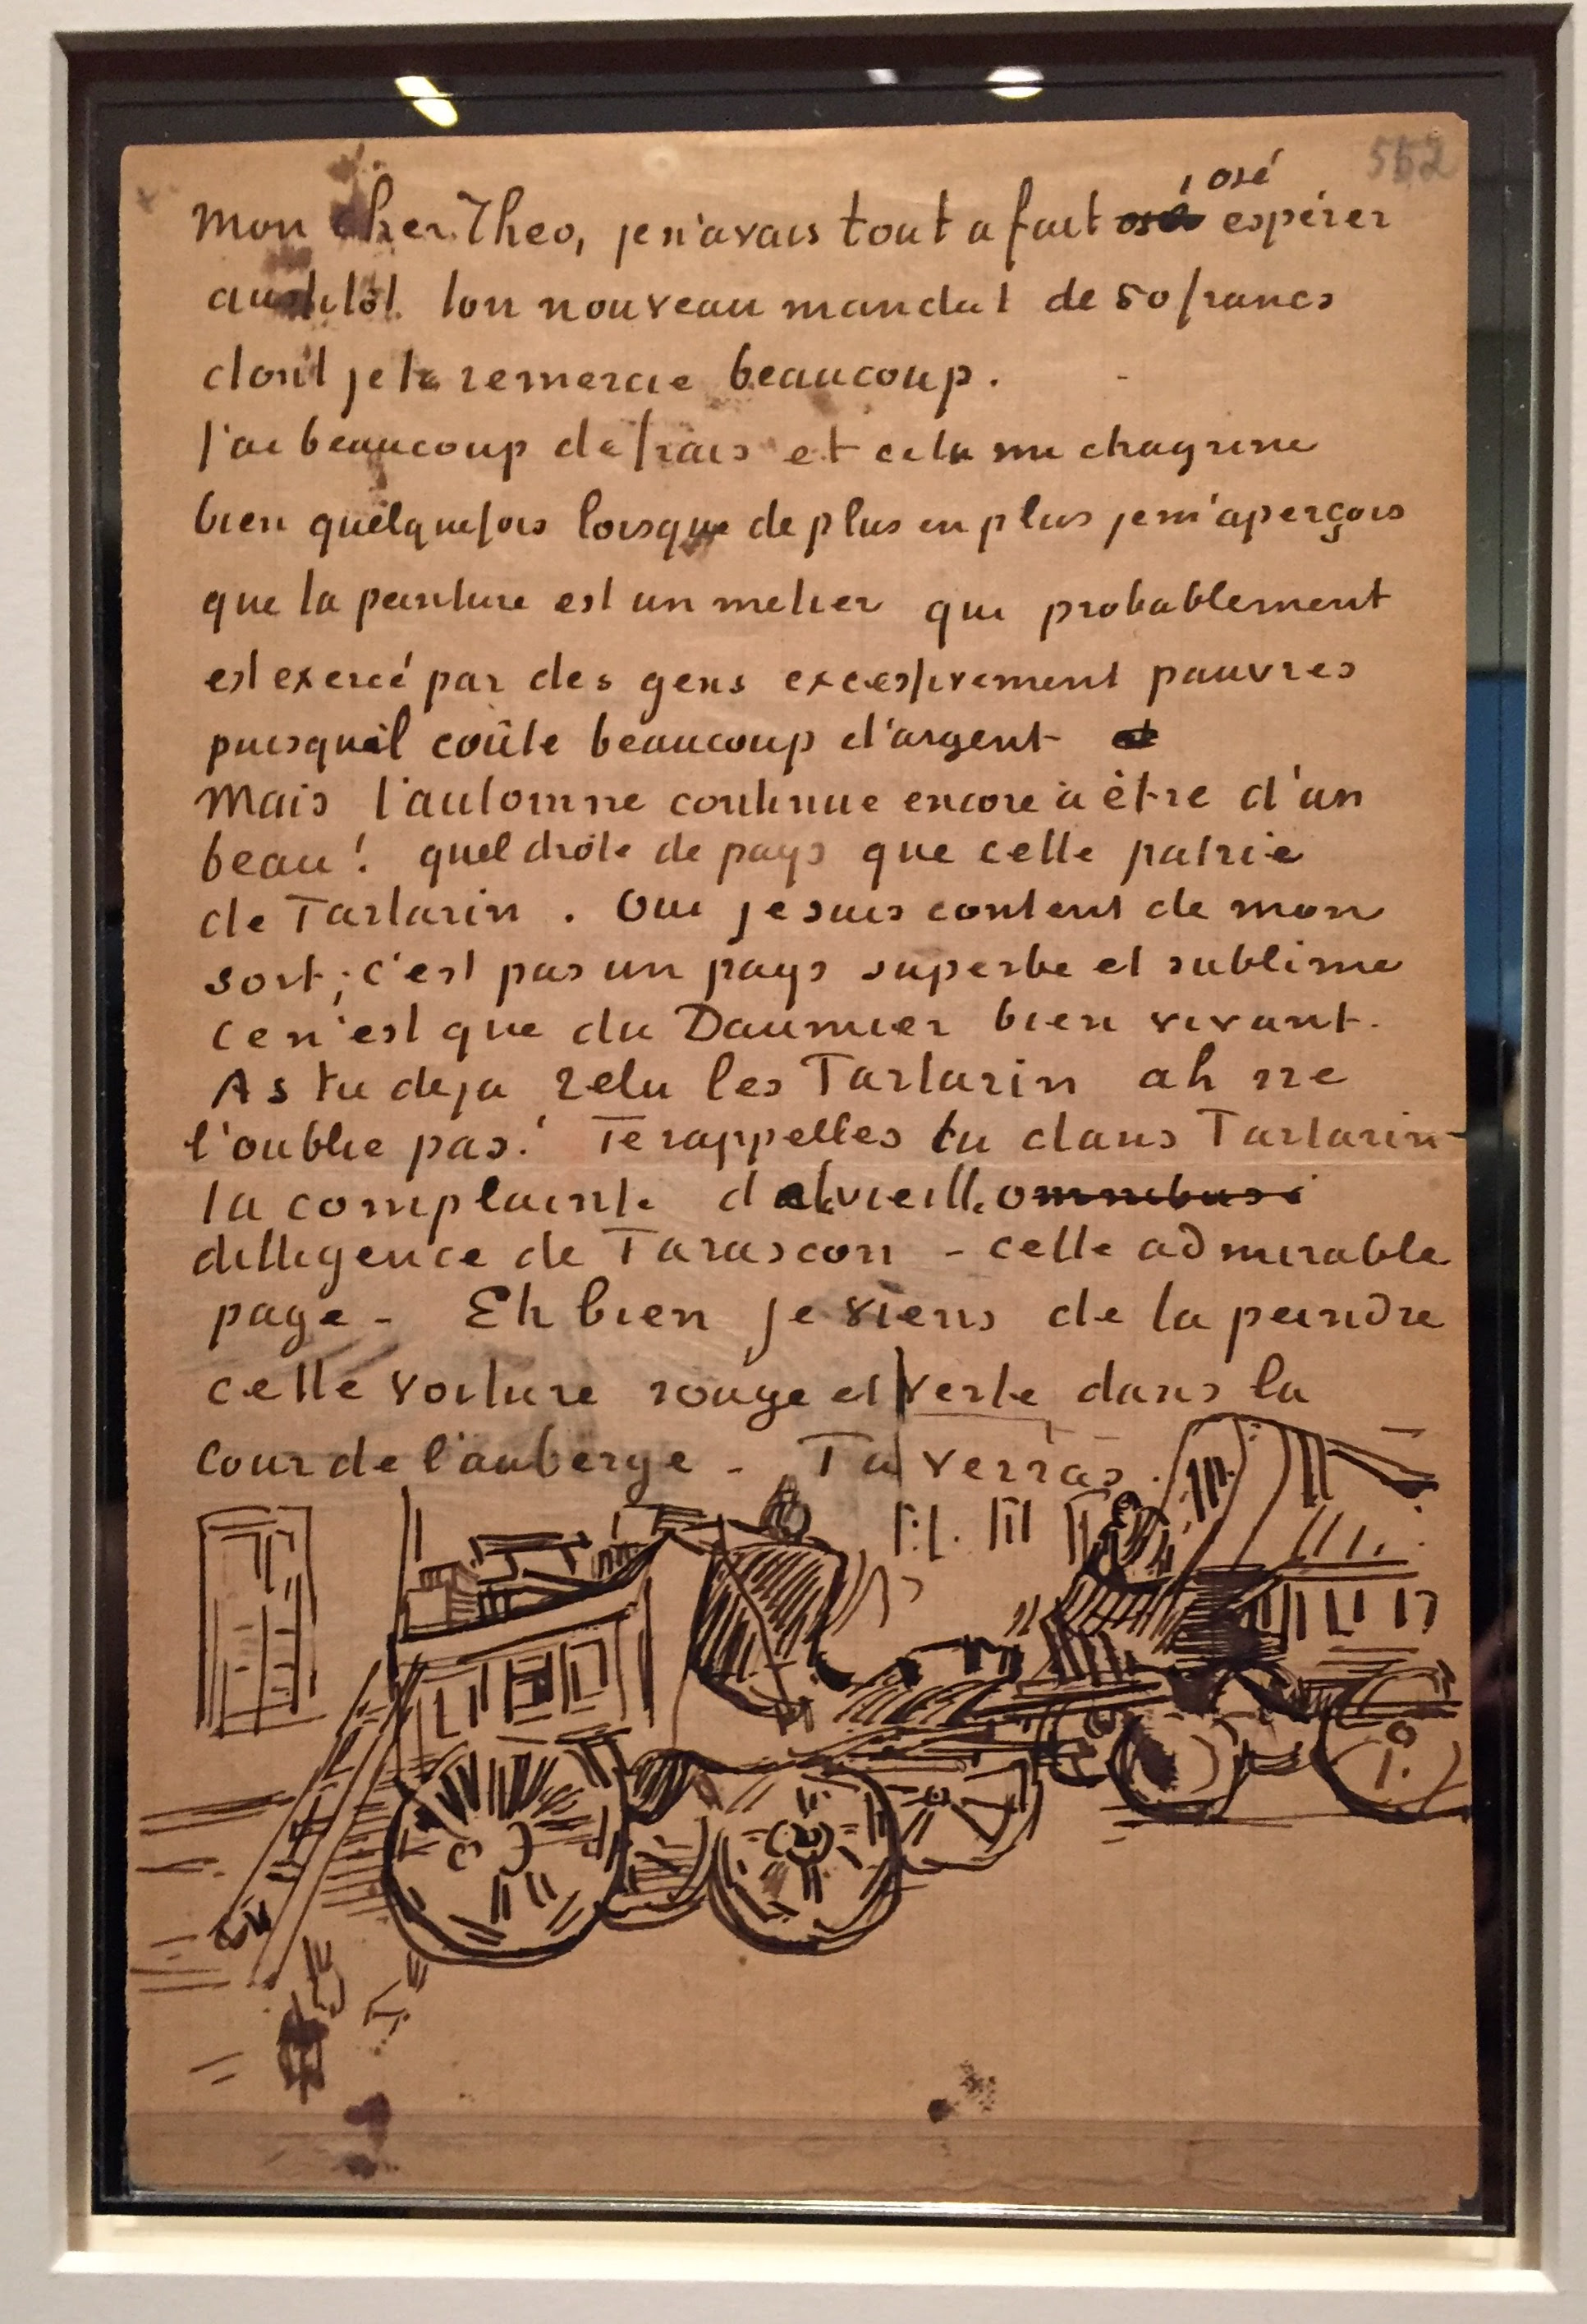 552
Mon cher Theo, je n'avais tout a fait osé osé espérer
aussitôt ton nouveau mandat de 50 francs
dont je te remercie beaucoup.
J'ai beaucoup de frais et cela me chagrine
bien quelquefois lorsque de plus en plus je m'aperçois
que la peinture est un metier qui probablement
est exercé par des gens excessivement pauvres
puisqu'il coûte beaucoup d'argent et
Mais l'automne continue encore à être d'un
beau! quel drôle de pays que cette patrie
de Tartarin. Oui je suis content de mon
sort; c'est pas un pays superbe et sublime
ce n'est que du Daumier bien vivant.
As tu deja relu les Tartarin ah ne
l'oublie pas! Te rappelles tu dans Tartarin
la complainte de la vieille omnibus
dilligence de Tarascon - cette admirable
page - Eh bien je viens de la peindre
cette voiture rouge et verte dans la
cour de l'auberge - Tu verras.